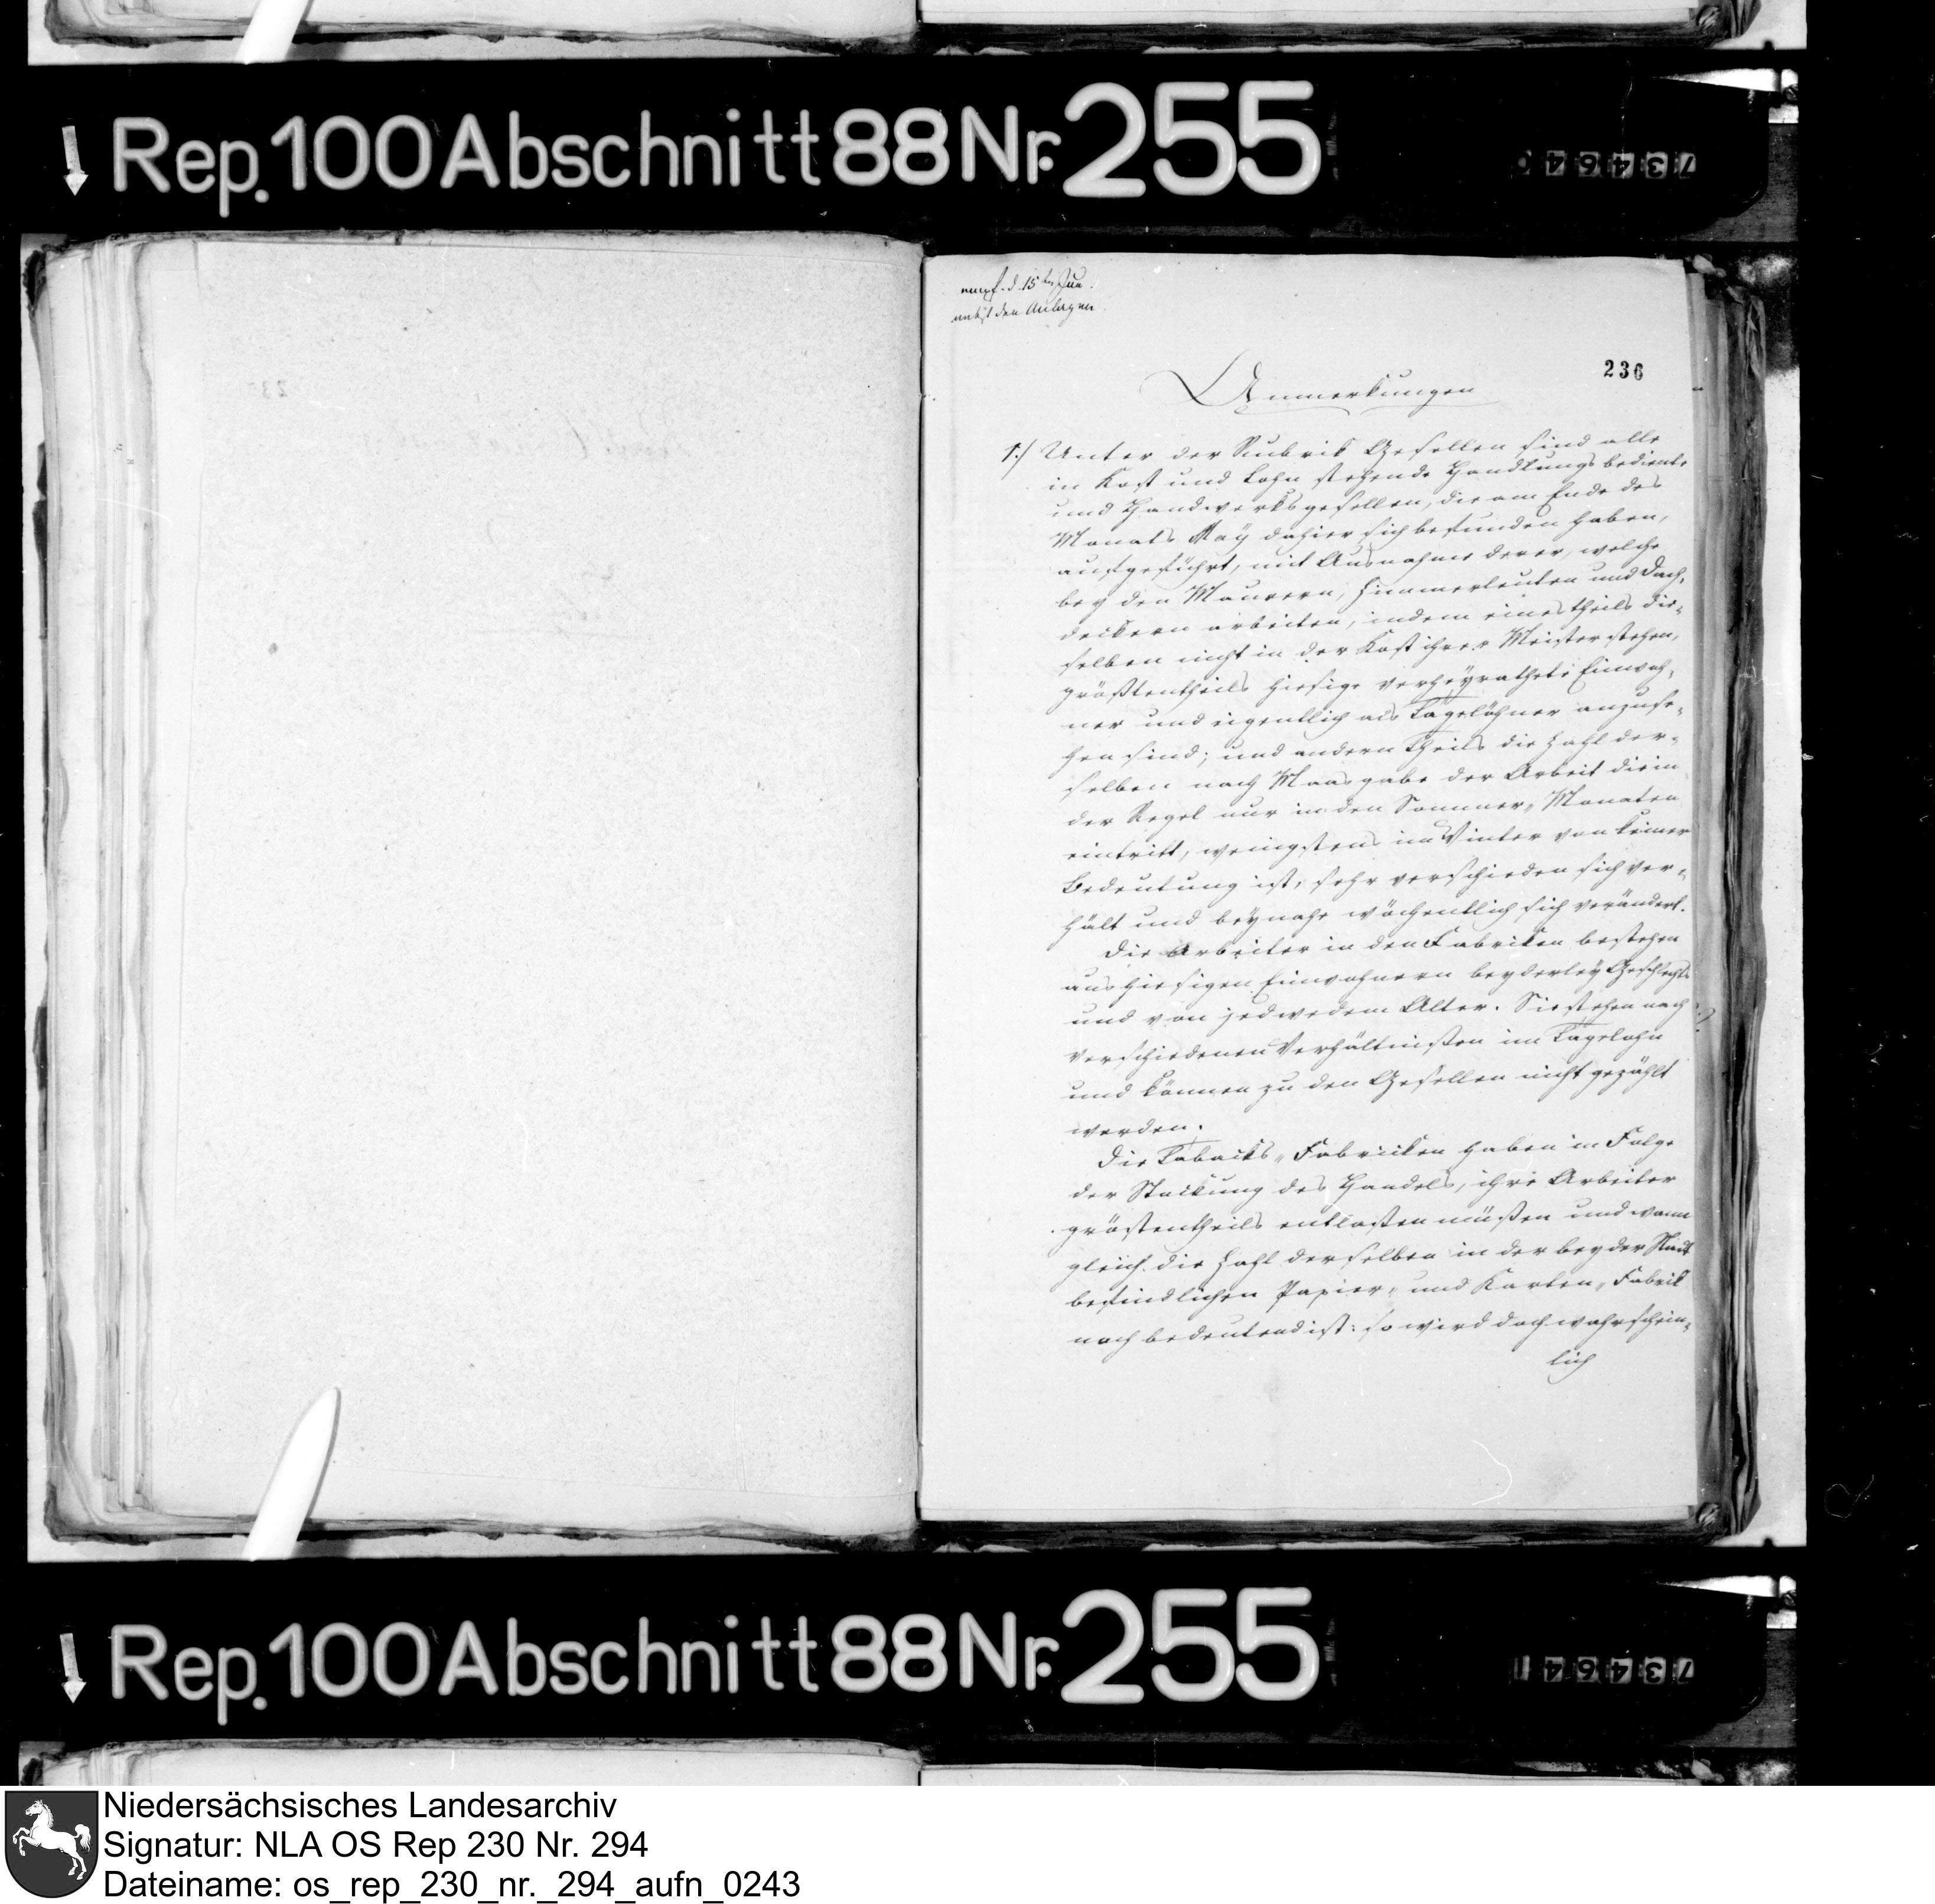 Rep. 100 Abschnitt 88 Nr. 255
73464
empf. d. 15ten Jun.
nebst den Anlagen
236
Anmerkungen
1./ Unter der Rubrik Gesellen sind alle
in Kost und Lohn stehende Handlungsbediente
und Handwerksgesellen, die am Ende des
Monats May dahier sich befunden haben,
aufgeführt, mit Ausnahme derer, welche
bey den Maurern, Zimmerleuten und Dach-
deckern arbeiten, indem eines theils die-
selben nicht in der Kost ihrer Meister stehen,
größtentheils hiesige verheyrathete Einwoh-
ner und eigentlich als Tagelöhner anzuse-
hen sind; und andern Theils die Zahl der-
selben nach Maasgabe der Arbeit die in
der Regel nur in den Sommer-Monaten
eintritt, wenigstens im Winter von keiner
Bedeutung ist, sehr verschieden sich ver-
hält und beynahe wöchentlich sich verändert.
Die Arbeiter in den Fabriken bestehen
aus hiesigen Einwohnern beyderley Geschlechts
und von jedwedem Alter. Sie stehen nach
verschiedenen Verhältnißen im Tagelohn
und können zu den Gesellen nicht gezählt
werden.
Die Tabacks-Fabricken haben in Folge
der Stockung des Handels, ihre Arbeiter
gröstentheils entlaßen müßen und wenn
gleich die Zahl derselben in der bey der Stadt
befindlichen Papier- und Karten-Fabrik
noch bedeutend ist: so wird doch wahrschein-
lich
Rep. 100 Abschnitt 88 Nr. 255
734641
Niedersächsisches Landesarchiv
Signatur: NLA OS Rep 230 Nr. 294
Dateiname: os_rep_230_nr._294_aufn_0243